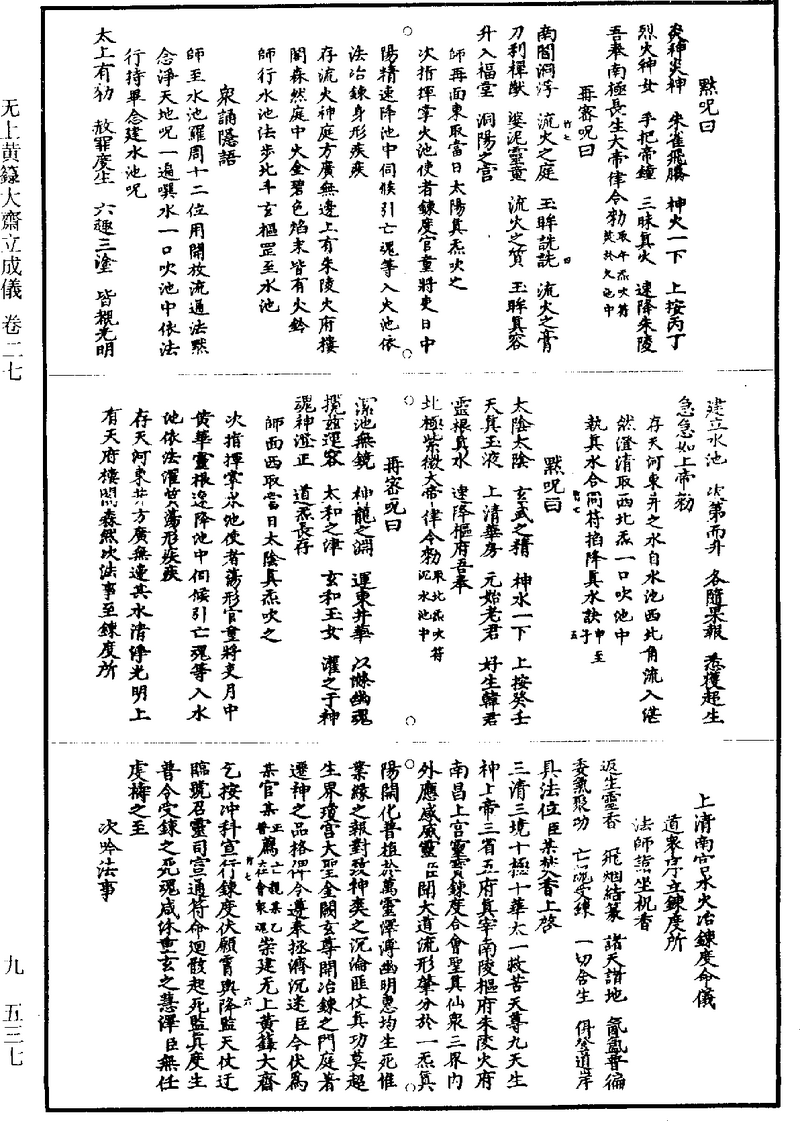 默呪曰
炎神炎神　朱雀飛騰　神火一下　上按丙丁
烈火神女　手把帝鐘　三昧真火　速降朱陵
吾奉南極長生大帝律令勑取午炁吹符焚於火池中
再密呪曰
南閻洞浮　流火之庭　玉眸詵詵　流火之膏
刀利禪猷　婆泥靈童　流火之質　玉眸真容
升入福堂　洞陽之宫
師再面東取當日太陽真炁吹之
次指揮掌火池使者鍊度官童將吏日中
陽精速降池中伺候引亡魂等入火池依
法冶鍊身形疾疾
存流火神庭方廣無邊上有朱陵火府樓
閣森然庭中火金碧色焰末皆有火鈴
師行水池法步北斗玄樞罡至水池
衆誦隱語
師至水池羅周十二位用開放流通法黙
念淨天地呪一遍噀水一口吹池中依法
行持畢念建水池呪
太上有勑　赦罪度生　六趣三塗　皆覩光明
建立水池　次第而升　各隨果報　悉獲超生
急急如上帝勑
存天河東井之水自水池西北角流入湛
然澄清取西北炁一口吹池中
執真水合同符掐降真水訣申至子
默呪曰
太陰太陰　玄武之精　神水一下　上按癸壬
天真玉液　上清華房　元始老君　好生韓君
靈根真水　速降樞府吾奉
北極紫微大帝律令勑取北炁吹符泥水池中
再密呪曰
潔池無鏡　神龍之淵　運東井華　以滌幽魂
攬茲運容　太和之津　玄和玉女　濯之于神
魂神澄正　道炁長存
師面西取當日太陰真炁吹之
次指揮掌水池使者蕩形官童將吏月中
黄華靈根速降池中伺候引亡魂等入水
池依法濯質蕩形疾疾
存天河東井方廣無邊其水清淨光明上
有天府樓閣森然次法事至鍊度所
上清南宫水火冶鍊度命儀
道衆序立鍊度所
法師請坐祝香
返生靈香　飛烟結篆　諸天諸地　氤氳普徧
委氣聚功　亡魂受鍊　一切含生　俱登道岸
具法位臣某焚香上啓
三清三境十極十華太一救苦天尊九天生
神上帝三省五府真宰南陵樞府朱陵火府
南昌上宫靈寳鍊度合會聖真仙衆三界内
外應感威靈臣聞大道流形肇分於一炁真
陽開化普植於萬靈澤溥幽明惠均生死惟
業緣之報對致神爽之沉淪匪仗真功莫超
生界瓊宫大聖金闕玄尊開冶鍊之門庭著
遷神之品格俾令遵奉拯濟沉迷臣今伏爲
某官某正薦亡親某乙普薦在會衆魂崇建无上黄籙大齋
乞按冲科宣行鍊度伏願霄輿降監天仗迂
臨號召靈司宣通符命迴骸起死監真度生
普令受鍊之死魂咸休重玄之慧澤臣無任
虔禱之至
次吟法事
无上黄籙大齋立成儀　卷二七
九　五三七